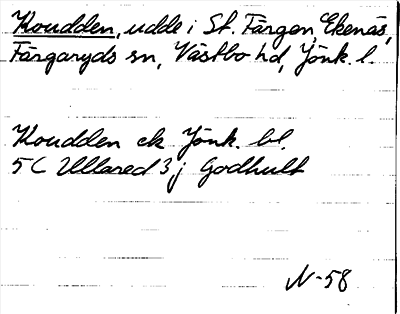 Koudden, udde i St. Färgen, Ekenäs,
Färgaryds sn, Västbo hd, Jönk. l.
Koudden ek Jönk. bl.
5C Ullared 3j Godhult
N-58